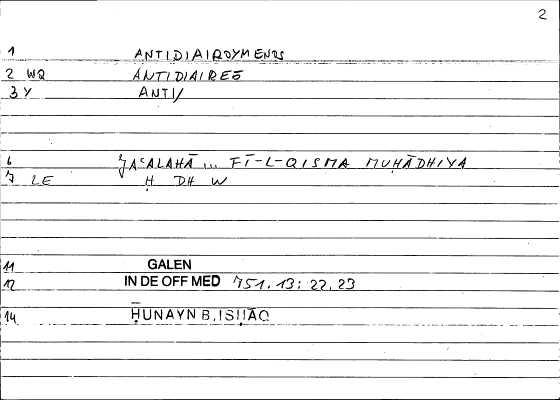 2
1 ANTIDIAIROYMENOS
2 WQ ANTIDIAIREŌ
3 Y ANTI/
6 ǦAʿALAHĀ ... FĪ-L-QISMA MUḤĀDHIYA
7 LE Ḥ DH W
11 GALEN
12 IN DE OFF MED 751. 13: 22, 23
14 ḤUNAYN B. ISḤĀQ